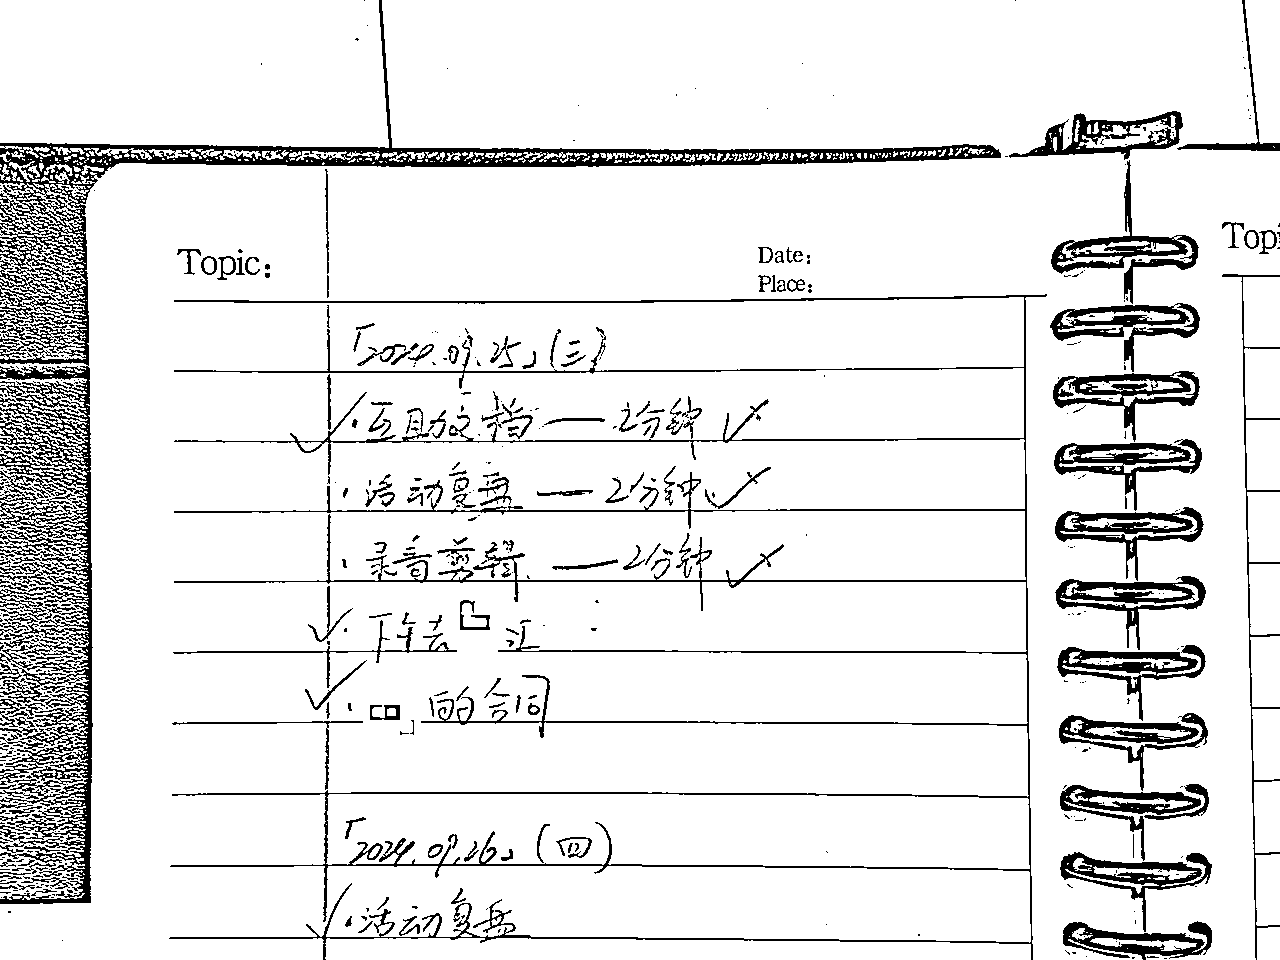 Topic:
Date:
Place:
Topi
「2024.09.25」(三)
· 互助文档 —— 2分钟
· 活动复盘 —— 2分钟
· 录音剪辑 —— 2分钟
· 下午去 汇
· 的合同
「2024.09.26」(四)
· 活动复盘